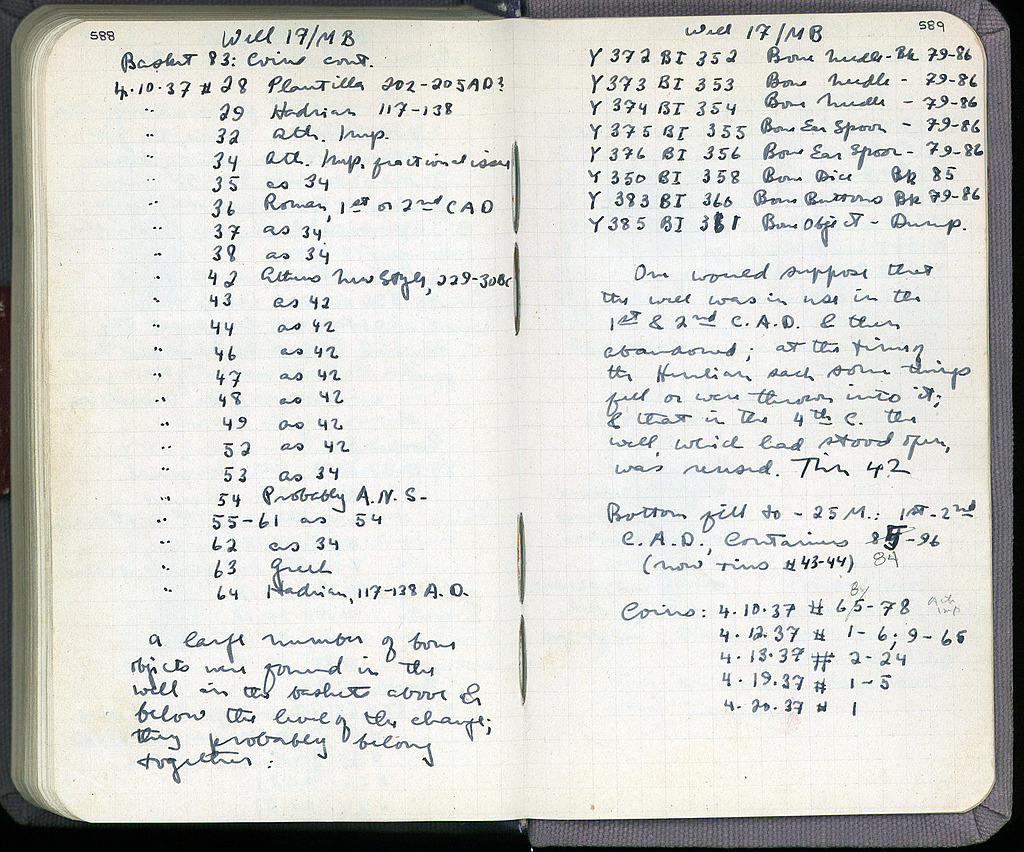 588
Well 17/MB
Basket 83: Coins cont.
4.10.37 # 28 Plautilla 202-205 AD?
" 29 Hadrian 117-138
" 32 Ath. Imp.
" 34 Ath. Imp. fractional issue
" 35 as 34
" 36 Roman, 1st or 2nd C AD
" 37 as 34
" 38 as 34
" 42 Athens New Style, 229-30 BC
" 43 as 42
" 44 as 42
" 46 as 42
" 47 as 42
" 48 as 42
" 49 as 42
" 52 as 42
" 53 as 34
" 54 Probably A.N.S.
" 55-61 as 54
" 62 as 34
" 63 Greek
" 64 Hadrian, 117-138 A.D.
A large number of bone
objects were found in the
well in the baskets above &
below the level of the change;
they probably belong
together:
589
Well 17/MB
Y 372 BI 352 Bone Needle - Bk 79-86
Y 373 BI 353 Bone Needle - 79-86
Y 374 BI 354 Bone Needle - 79-86
Y 375 BI 355 Bone Ear Spoon - 79-86
Y 376 BI 356 Bone Ear Spoon - 79-86
Y 350 BI 358 Bone Dice Bk 85
Y 383 BI 360 Bone Buttons Bk 79-86
Y 385 BI 361 Bone Object - Dump.
One would suppose that
the well was in use in the
1st & 2nd C. A.D. & then
abandoned; at the time of
the Herulian sack some things
fell or were thrown into it;
& that in the 4th C. the
well, which had stood open,
was reused. Tin 42
Bottom fill to - 25 M.: 1st-2nd
C. A.D., Containers 85-96
(now tins #43-44) 84
84
Coins: 4.10.37 # 65-78 Ath Imp
4.12.37 # 1-6; 9-65
4.13.37 # 2-24
4.19.37 # 1-5
4.20.37 # 1